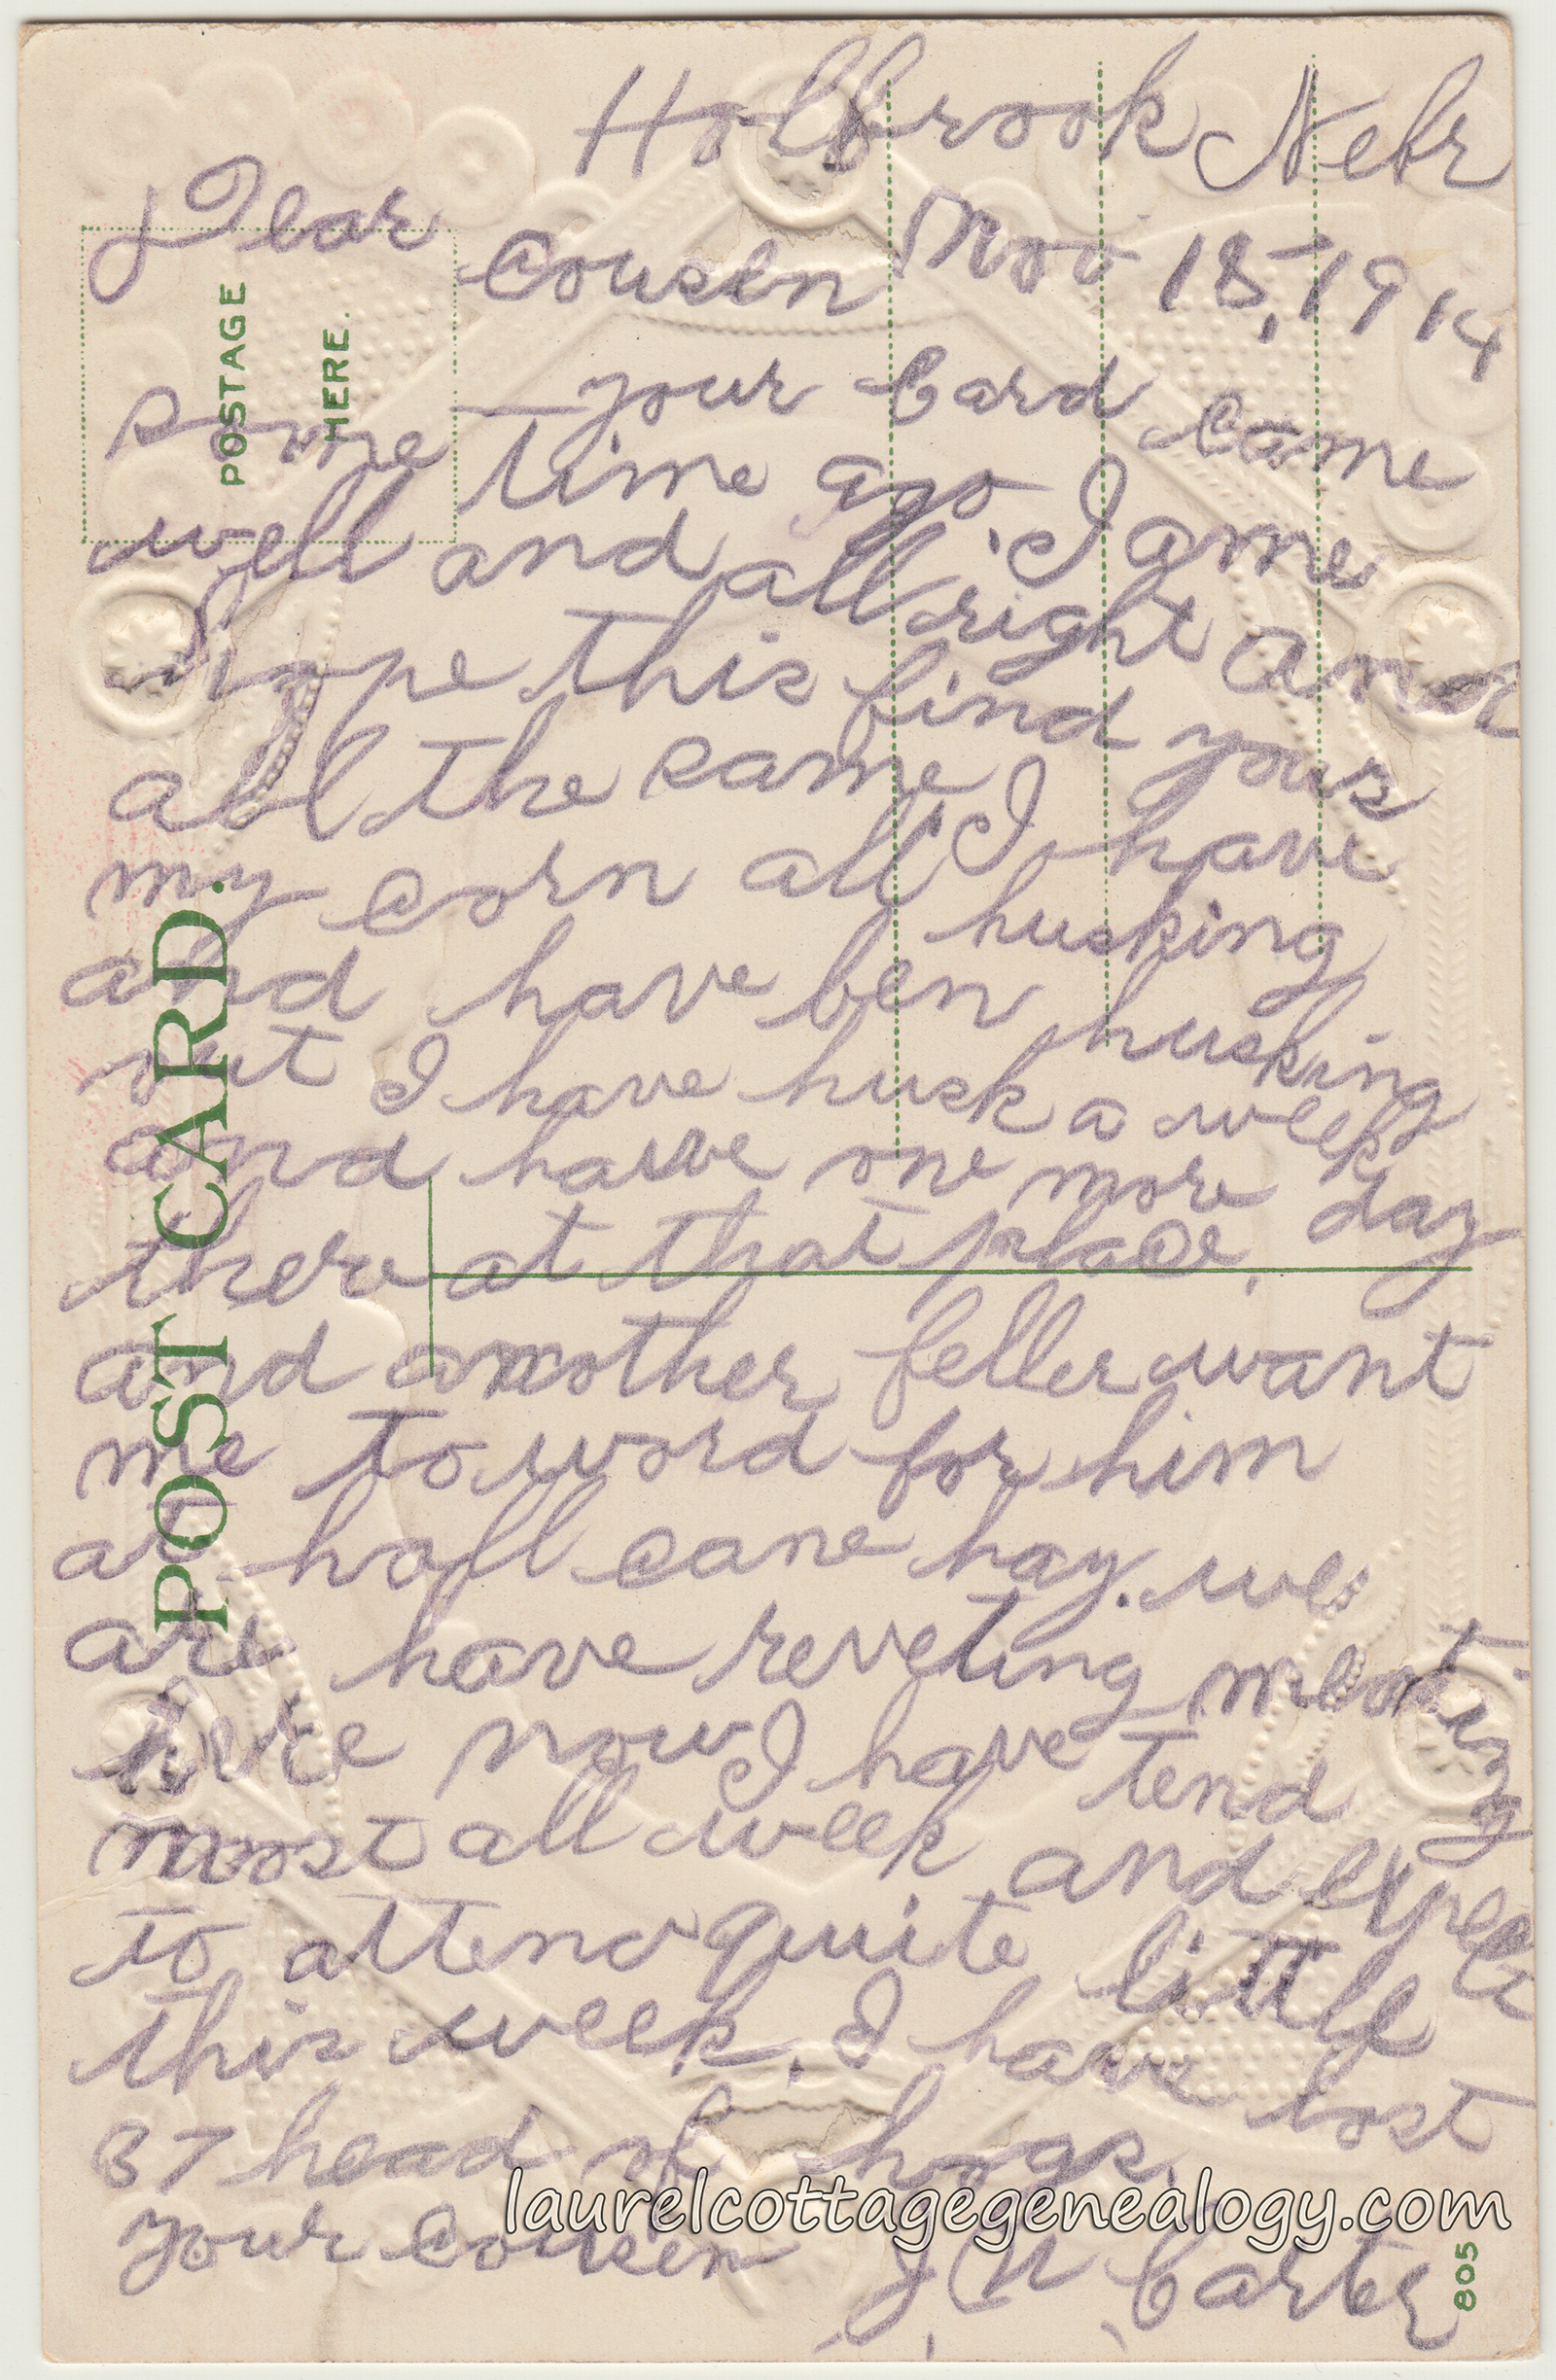 Holbrook Nebr
Nov 18, 1914
Dear Cousin
your Card Came
some time ago, I ame
well and all right and
hope this find yours
all the same I have
my corn all husking
and have ben husking
out I have husk a week
and have one more day
there at that place,
and another feller want
me to word for him
at hall cane hay. we
are have reveting meating
here now I have tend
most all week and expect
to attend quite little
this week, I have lost
37 head of hogs,
your Cousin J, N, Carter
POSTAGE
HERE.
POST CARD.
805
laurelcottagegenealogy.com